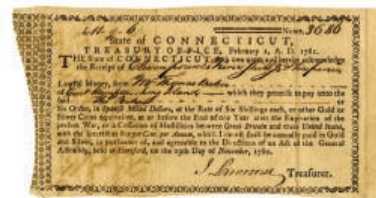 Numb. 3686
State of CONNECTICUT,
TREASURY-OFFICE, February 1, A. D. 1781.
THE State of CONNECTICUT, doth owe unto and hereby acknowledge
the Receipt of Eleven pounds
Lawful Money, from Thomas
of Long Island which they promise to pay unto the
said
his Order, in Spanish Milled Dollars, at the Rate of Six Shillings each, or other Gold or
Silver Coins equivalent, at or before the End of one Year after the Expiration of the
present War, or a Cessation of Hostilities between Great Britain and these United States,
with the Interest at Six per Cent. per Annum, which Interest shall be annually paid in Gold
and Silver, in pursuance of, and agreeable to the Directions of an Act of the General
Assembly, held at Hartford, on the 29th Day of November, 1780.
J Lawrence Treasurer.